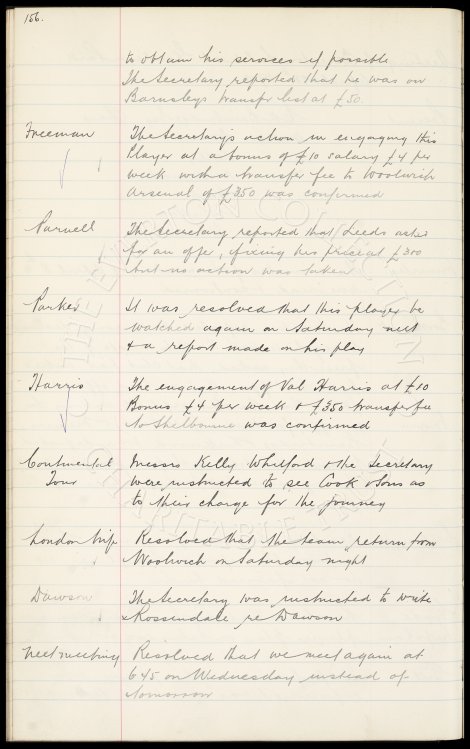 156.
to obtain his services if possible
The Secretary reported that he was on
Barnsleys transfer list at £50.
Freeman The Secretary's action in engaging this
Player at a bonus of £10 salary £4 per
week with a transfer fee to Woolwich
Arsenal of £350 was confirmed
Parnell The Secretary reported that Leeds asked
for an offer, fixing his price at £300
but no action was taken
Parker It was resolved that this player be
watched again on Saturday next
& a report made on his play
Harris The engagement of Val Harris at £10
Bonus £4 per week & £350 transfer fee
to Shelbourne was confirmed
Continental Messrs Kelly Whitford & the Secretary
Tour were instructed to see Cook & Sons as
to their charge for the journey
London trip Resolved that the team return from
Woolwich on Saturday night
Dawson The Secretary was instructed to write
Rossendale re Dawson
Next meeting Resolved that we meet again at
6 45 on Wednesday instead of
tomorrow
THE EVERTON COLLECTION
CHARITABLE